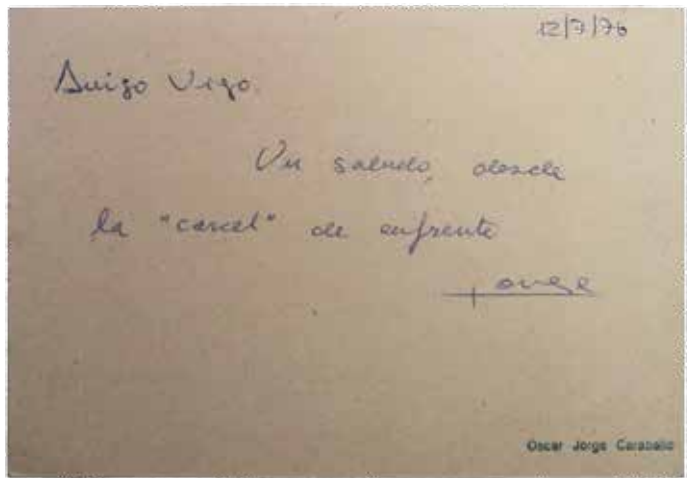 12/7/76
Amigo Vigo.
Un saludo, desde
la "carcel" de enfrente
Jorge
Oscar Jorge Caraballo